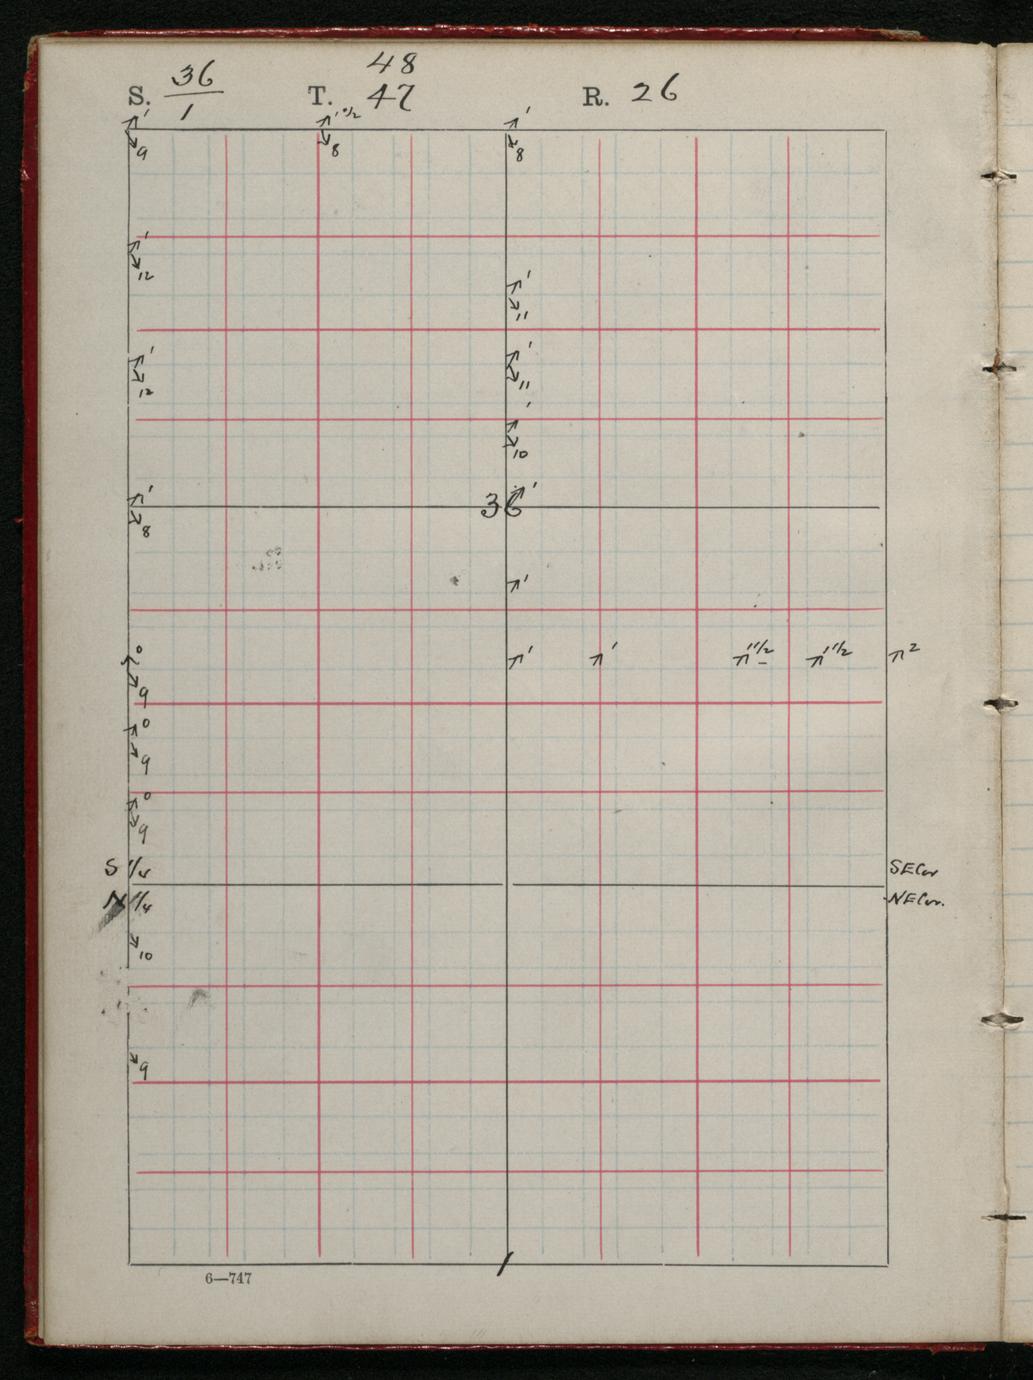 48
S. 36/1 T. 47 R. 26
1 1 1/2 1
9 8 8
1
12
1
11
1 1
12 11
1
10
1 36 1
8
1
0 1 1 1 1/2 1 1/2 2
9
0
9
0
9
S 1/4 SE Cor
N 1/4 NE Cor.
10
9
1
6—747